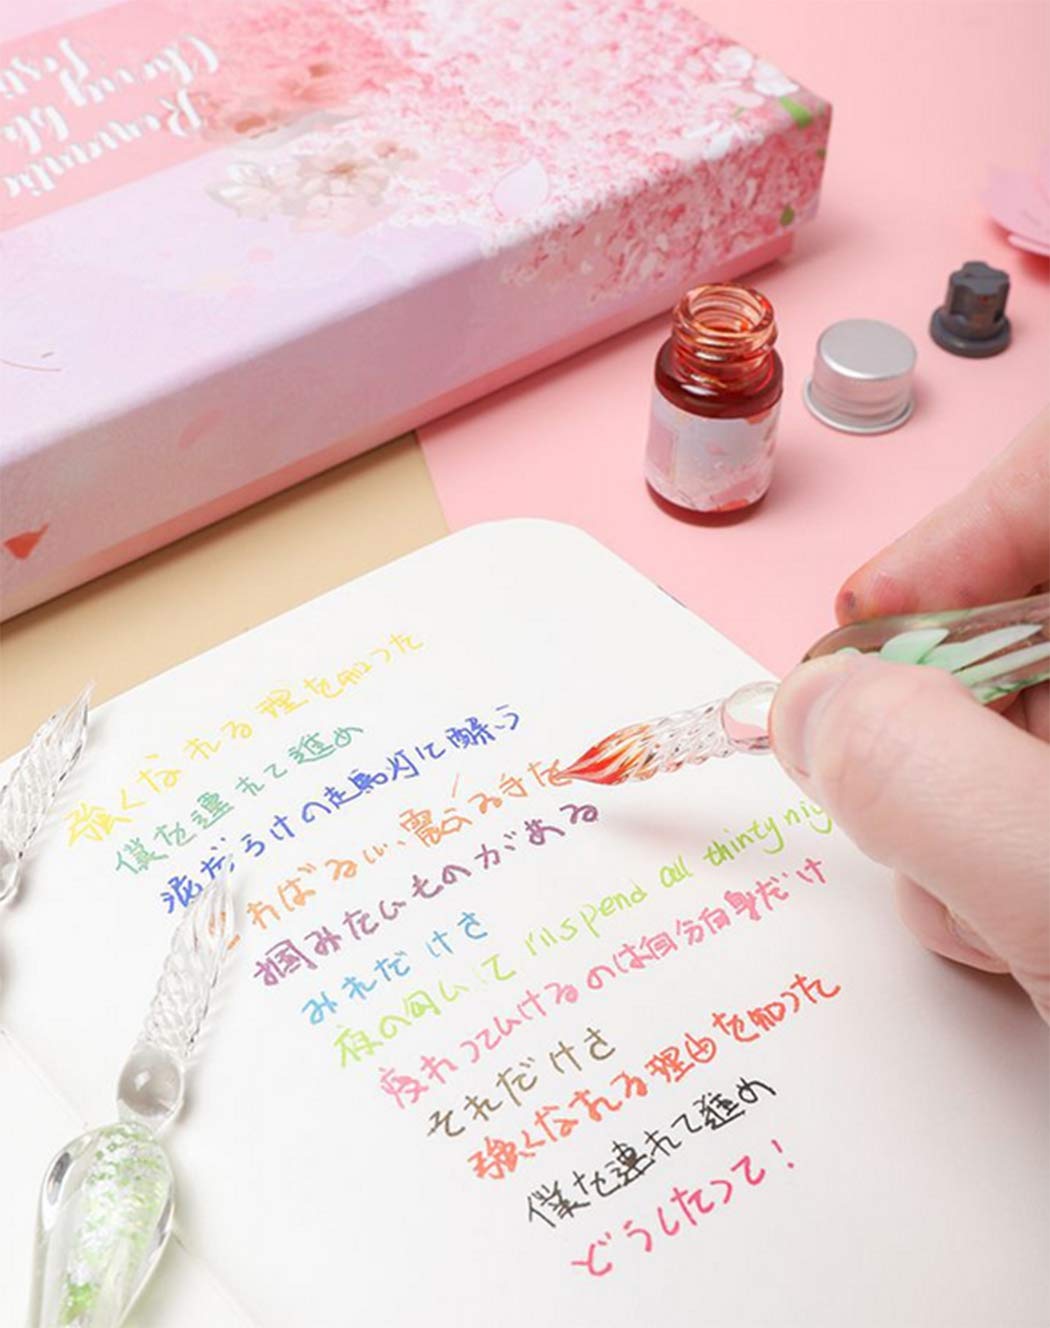 Romantic
Cherry blo
強くなれる理を知った
僕を連れて進め
泥だらけの走馬灯に酔う
ればるい、震える手を
掴みたいものがある
みれだけさ
夜の匂いに I'll spend all thinty nig
疲れってひけるのは何分自身だけ
それだけさ
強くなれる理由を知った
僕を連れて進め
どうしたって！